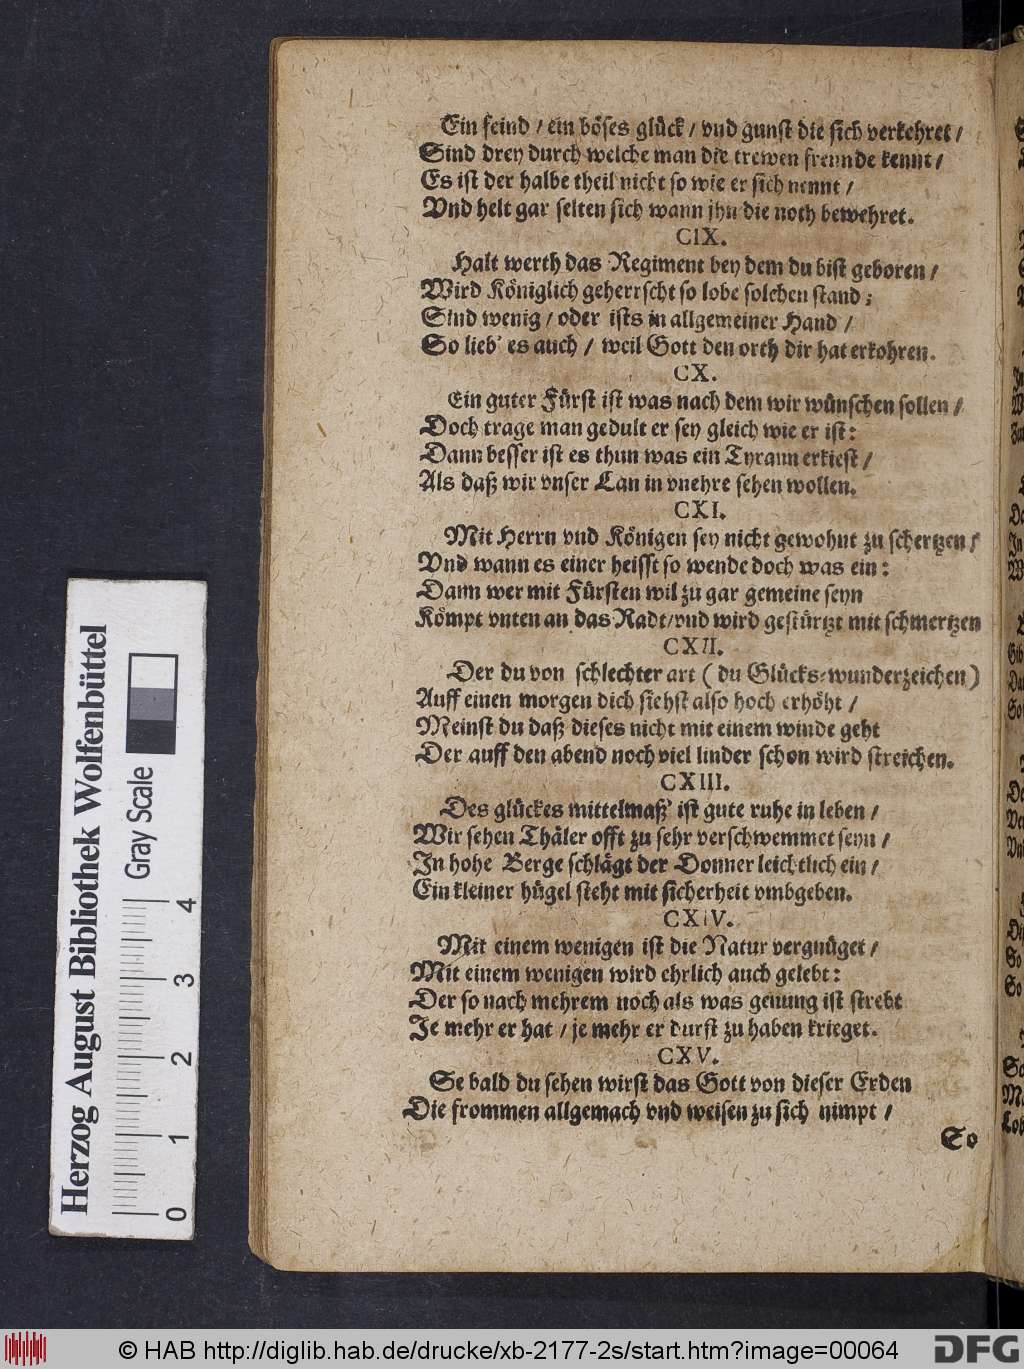 Ein feind / ein böses glück / vnd gunst die sich verkehret /
Sind drey durch welche man die trewen freunde kennt /
Es ist der halbe theil nicht so wie er sich nennt /
Vnd helt gar selten sich wann jhn die noth bewehret.
CIX.
Halt werth das Regiment bey dem du bist geboren /
Wird Königlich geherrscht so lobe solchen stand;
Sind wenig / oder ists in allgemeiner Hand /
So lieb' es auch / weil Gott den orth dir hat erkohren.
CX.
Ein guter Fürst ist was nach dem wir wünschen sollen /
Doch trage man gedult er sey gleich wie er ist:
Dann besser ist es thun was ein Tyrann erkiest /
Als daß wir vnser Lan in vnehre sehen wollen.
CXI.
Mit Herrn vnd Königen sey nicht gewohnt zu schertzen /
Vnd wann es einer heisst so wende doch was ein:
Dann wer mit Fürsten wil zu gar gemeine seyn
Kömpt vnten an das Radt / vnd wird gestürtzt mit schmertzen
CXII.
Der du von schlechter art (du Glücks-wunderzeichen)
Auff einen morgen dich siehst also hoch erhöht /
Meinst du daß dieses nicht mit einem winde geht
Der auff den abend noch viel linder schon wird streichen.
CXIII.
Des glückes mittelmaß' ist gute ruhe in leben /
Wir sehen Thäler offt zu sehr verschwemmet seyn /
In hohe Berge schlägt der Donner leichtlich ein /
Ein kleiner hügel steht mit sicherheit vmbgeben.
CXIV.
Mit einem wenigen ist die Natur vergnüget /
Mit einem wenigen wird ehrlich auch gelebt:
Der so nach mehrem noch als was genung ist strebt
Je mehr er hat / je mehr er durst zu haben krieget.
CXV.
Se bald du sehen wirst das Gott von dieser Erden
Die frommen allgemach vnd weisen zu sich nimpt /
So
Herzog August Bibliothek Wolfenbüttel
Gray Scale
0 1 2 3 4
© HAB http://diglib.hab.de/drucke/xb-2177-2s/start.htm?image=00064
DFG